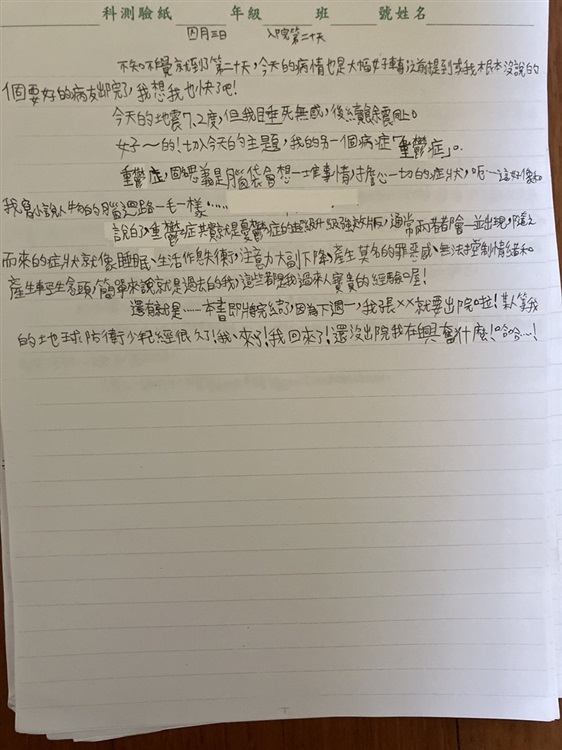 科測驗紙 年級 班 號姓名
四月三日 入院第二十天
不知不覺就到了第二十天,今天的病情也是大幅好轉,沒有提到或我根本沒說的
個要好的病友出院了,我想我也快了吧!
今天的地震7.2度,但我睡死無感,後續餘震同上。
好~的!切入今天的主題,我的另一個病症「重鬱症」。
重鬱症,顧名思義是腦袋會想一堆事情、擔心一切的症狀,呃…這好像和
我寫小說人物的腦迴路一毛一樣……
說白了,重鬱症其實就是憂鬱症的超級升級強效版,通常兩者都會一並出現,隨之
而來的症狀就像睡眠、生活作息失衡,注意力大副下降,產生莫名的罪惡感、無法控制情緒和
產生輕生念頭,簡單來說就是過去的我,這些都是我過來人寶貴的經驗喔!
還有就是……本書即將完結了,因為下週一,我張××就要出院啦!某人等我
的地球防衛少已經很久了!我來了!我回來了!還沒出院我在興奮什麼!哈哈…!